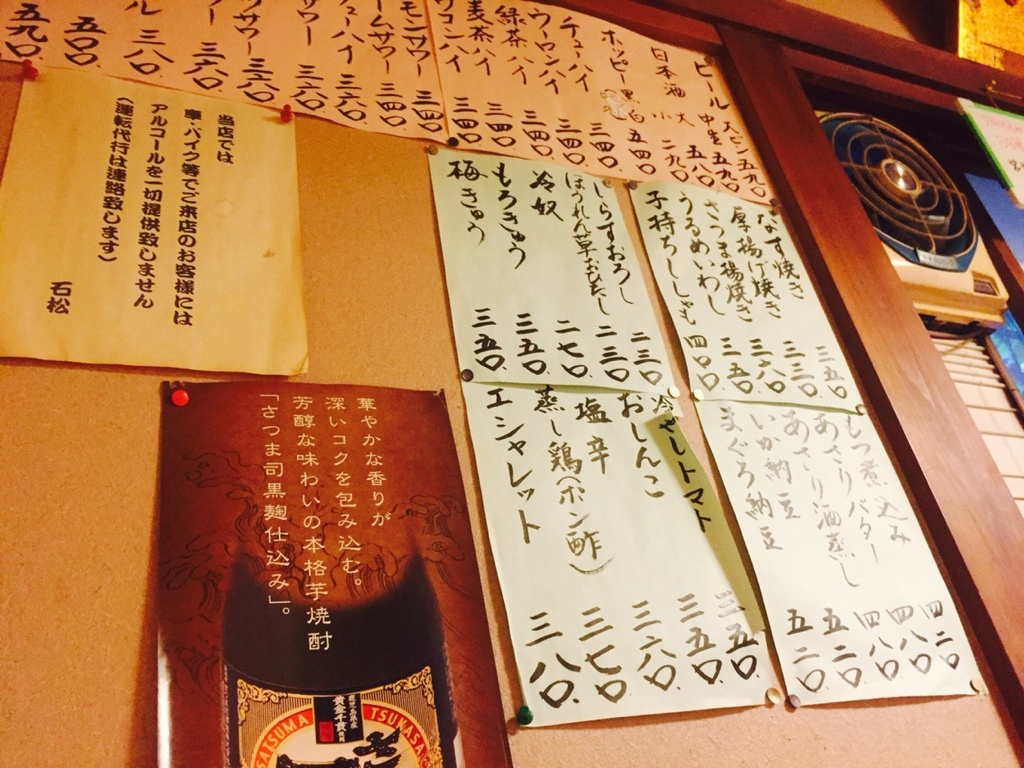 ビール 大ビン 五九〇
中生 五八〇
日本酒 大
小 二九〇
ホッピー 黒 白 五四〇
チューハイ 三四〇
ウーロンハイ 三四〇
緑茶ハイ 三四〇
麦茶ハイ 三四〇
ウコンハイ 三四〇
モンサワー 三四〇
ームサワー 三四〇
ューハイ 三六〇
サワー 三六〇
ッサワー 三六〇
ー 三六〇
ル 三八〇
五〇〇
五九〇
当店では
車・バイク等でご来店のお客様には
アルコールを一切提供致しません
(運転代行は連絡致します)
石松
なす焼き 三五〇
厚揚げ焼き 三三〇
さつま揚焼き 三八〇
うるめいわし 三五〇
子持ちししゃも 四〇〇
しらすおろし 二三〇
ほうれん草おひたし 二三〇
冷奴 二七〇
もろきゅう 三五〇
梅きゅう 三五〇
もつ煮込み 四二〇
あさりバター 四八〇
あさり酒蒸し 四八〇
いか納豆 五二〇
まぐろ納豆 五二〇
冷やしトマト 三五〇
おしんこ 三五〇
塩辛 三六〇
蒸し鶏(ポン酢) 三七〇
エシャレット 三八〇
華やかな香りが
深いコクを包み込む。
芳醇な味わいの本格芋焼酎
「さつま司黒麹仕込み」。
SATSUMA TSUKASA
鹿児島県産
黄金千貫使用